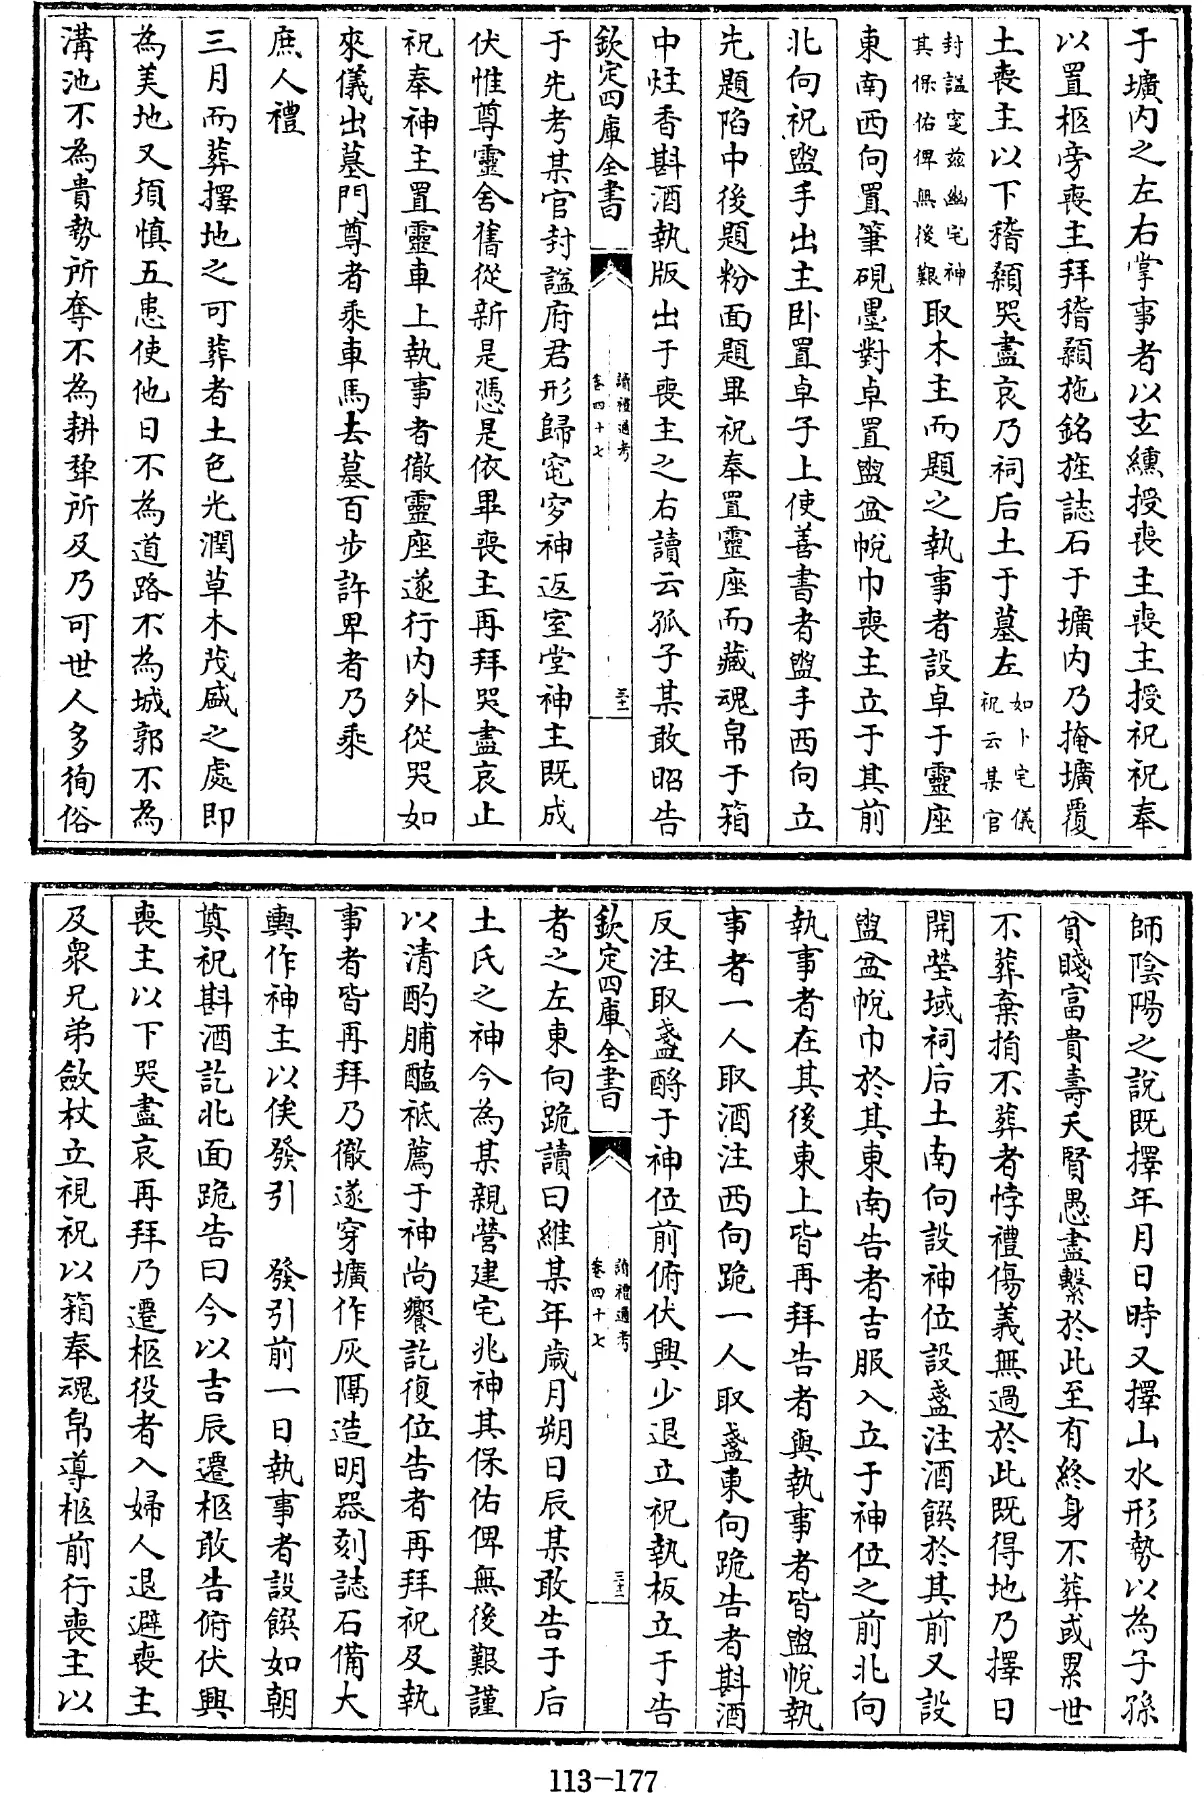 于壙内之左右掌事者以玄纁授喪主喪主授祝祝奉
以置柩旁喪主拜稽顙施銘旌誌石于壙内乃掩壙覆
土喪主以下稽顙哭盡哀乃祠后土于墓左如卜宅儀祝云某官
封諡窆兹幽宅神其保佑俾無後艱取木主而題之執事者設卓于靈座
東南西向置筆硯墨對卓置盥盆帨巾喪主立于其前
北向祝盥手出主卧置卓子上使善書者盥手西向立
先題陷中後題粉面題畢祝奉置靈座而藏魂帛于箱
中炷香斟酒執版出于喪主之右讀云孤子某敢昭告
欽定四庫全書
讀禮通考
卷四十七
三十二
于先考某官封諡府君形歸窀穸神返室堂神主既成
伏惟尊靈舍舊從新是憑是依畢喪主再拜哭盡哀止
祝奉神主置靈車上執事者徹靈座遂行内外從哭如
來儀出墓門尊者乘車馬去墓百步許卑者乃乘
庶人禮
三月而葬擇地之可葬者土色光潤草木茂盛之處即
為美地又須慎五患使他日不為道路不為城郭不為
溝池不為貴勢所奪不為耕犂所及乃可世人多徇俗
師陰陽之說既擇年月日時又擇山水形勢以為子孫
貧賤富貴壽夭賢愚盡繫於此至有終身不葬或累世
不葬棄捐不葬者悖禮傷義無過於此既得地乃擇日
開塋域祠后土南向設神位設盞注酒饌於其前又設
盥盆帨巾於其東南告者吉服入立于神位之前北向
執事者在其後東上皆再拜告者與執事者皆盥帨執
事者一人取酒注西向跪一人取盞東向跪告者斟酒
反注取盞酹于神位前俯伏興少退立祝執板立于告
欽定四庫全書
讀禮通考
卷四十七
三十二
者之左東向跪讀曰維某年歲月朔日辰某敢告于后
土氏之神今為某親營建宅兆神其保佑俾無後艱謹
以清酌脯醢祗薦于神尚饗訖復位告者再拜祝及執
事者皆再拜乃徹遂穿壙作灰隔造明器刻誌石備大
輿作神主以俟發引　發引前一日執事者設饌如朝
奠祝斟酒訖北面跪告曰今以吉辰遷柩敢告俯伏興
喪主以下哭盡哀再拜乃遷柩役者入婦人退避喪主
及衆兄弟斂杖立視祝以箱奉魂帛導柩前行喪主以
113-177